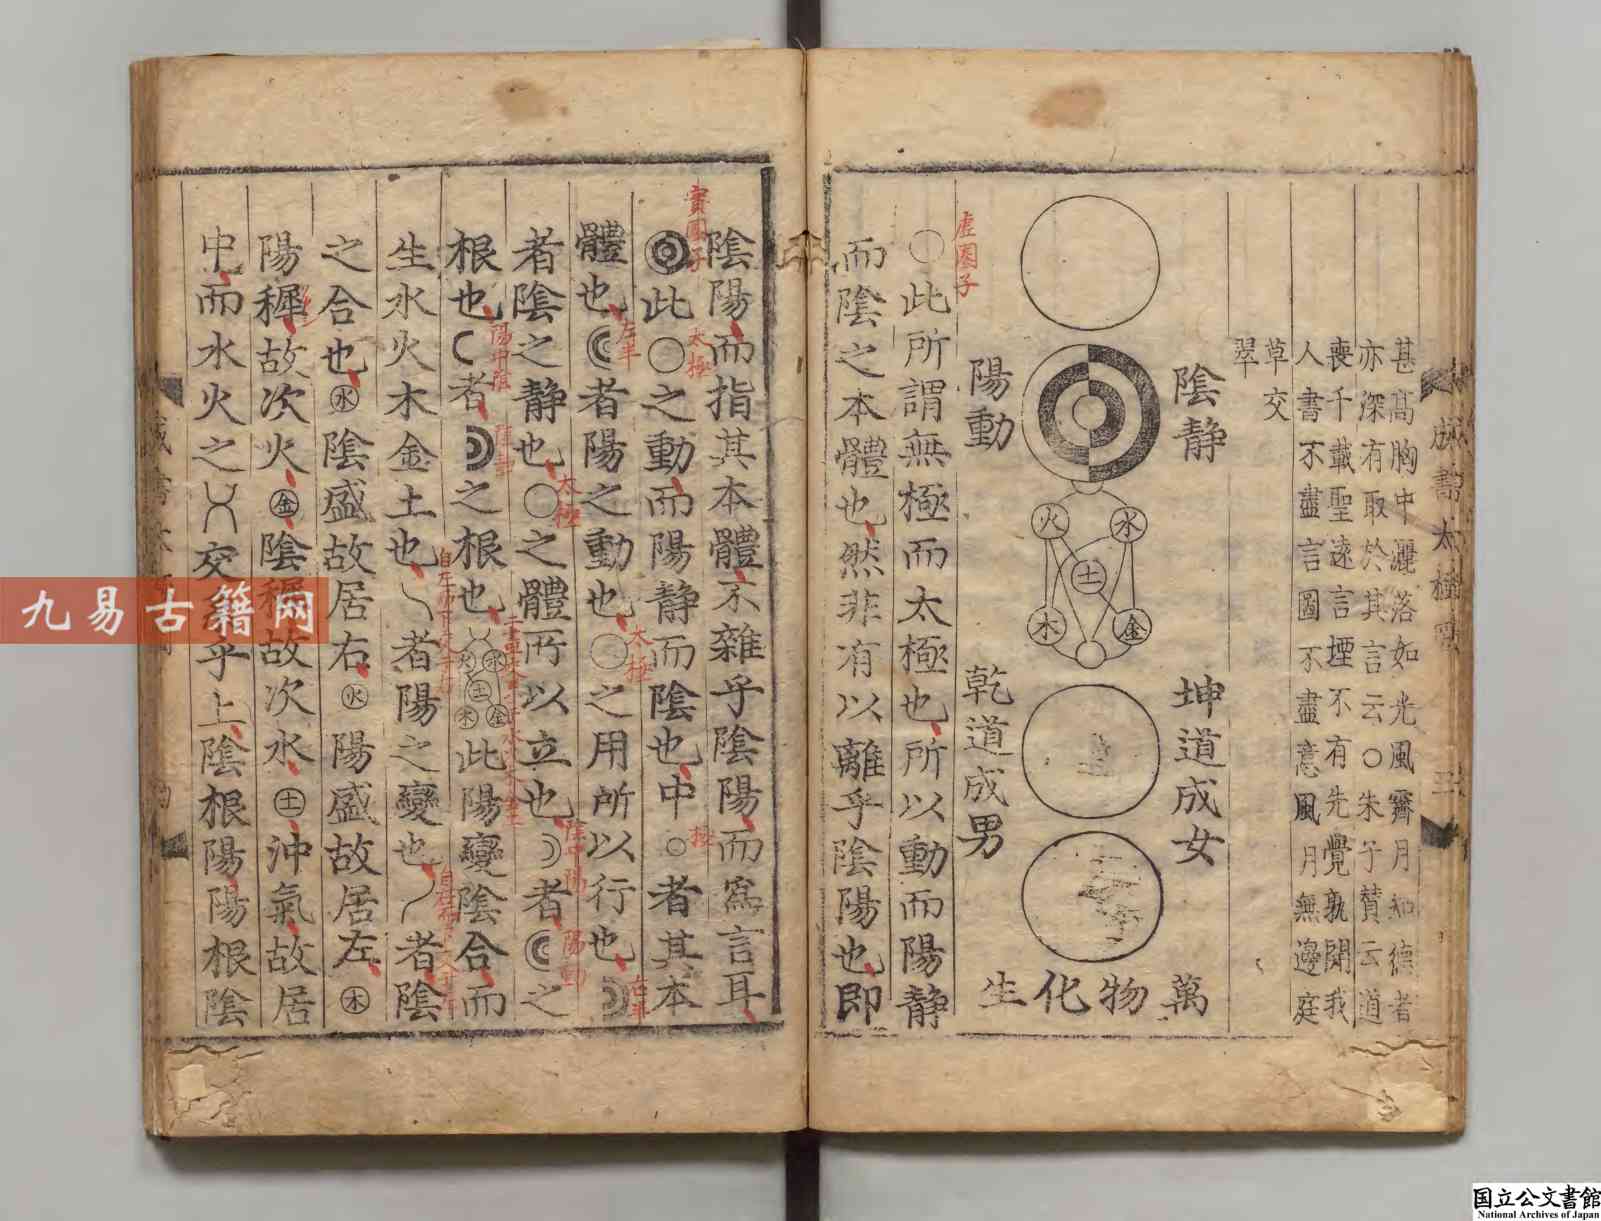 甚高胸中灑落如光風霽月知德者
亦深有取於其言云○朱子贊云道
喪千載聖遠言堙不有先覺孰開我
人書不盡言圖不盡意風月無邊庭
草交
翠
陰靜
陽動
火
水
土
木
金
坤道成女
乾道成男
萬物化生
虛圈子
○此所謂無極而太極也所以動而陽靜
而陰之本體也然非有以離乎陰陽也即
陰陽而指其本體不雜乎陰陽而爲言耳
實圈子
此○之動而陽靜而陰也中○者其本
太極
極
體也
者陽之動也○之用所以行也
左半
太極
右半
者陰之靜也○之體所以立也
者
之
太極
陰中陽
陽動
根也
者
之根也
水
火
土
木
金
此陽變陰合而
陽中陰
陰靜
生水火木金土也
者陽之變也
者陰
之合也㊌陰盛故居右㊋陽盛故居左㊍
陽穉故次火㊎陰穉故次水㊏沖氣故居
中而水火之
交系乎上陰根陽陽根陰
九易古籍网
国立公文書館
National Archives of Japan